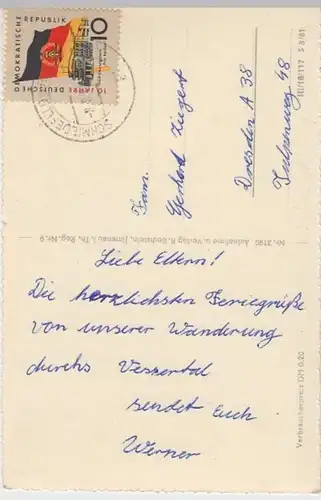 Liebe Eltern!
Die herzlichsten Feriengrüße
von unserer Wanderung
durchs Vessertal
sendet Euch
Werner
Fam.
Gerhard Ziegert
Dresden A 38
Tulpenweg 48
10 JAHRE DEUTSCHE
DEMOKRATISCHE
REPUBLIK
10
SCHMIEDEFELD
Nr. 3190 Aufnahme u. Verlag R. Bechstein, Ilmenau i. Th. Reg. Nr. 9
III/18/117 S 8/61
Verbraucherpreis DM 0,20